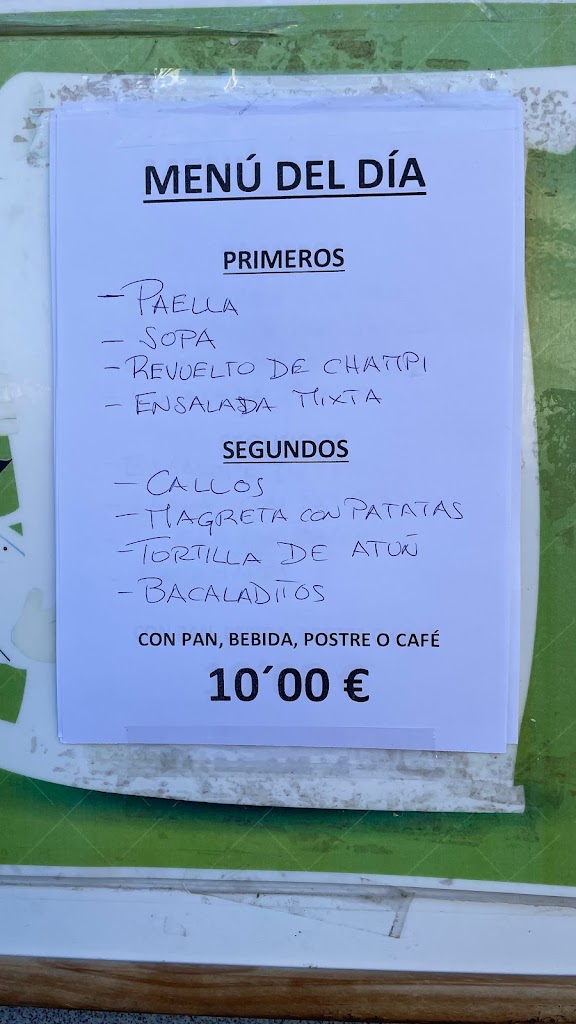 MENÚ DEL DÍA
PRIMEROS
- PAELLA
- SOPA
- REVUELTO DE CHAMPI
- ENSALADA MIXTA
SEGUNDOS
- CALLOS
- MAGRETA CON PATATAS
- TORTILLA DE ATÚN
- BACALADITOS
CON PAN, BEBIDA, POSTRE O CAFÉ
10´00 €